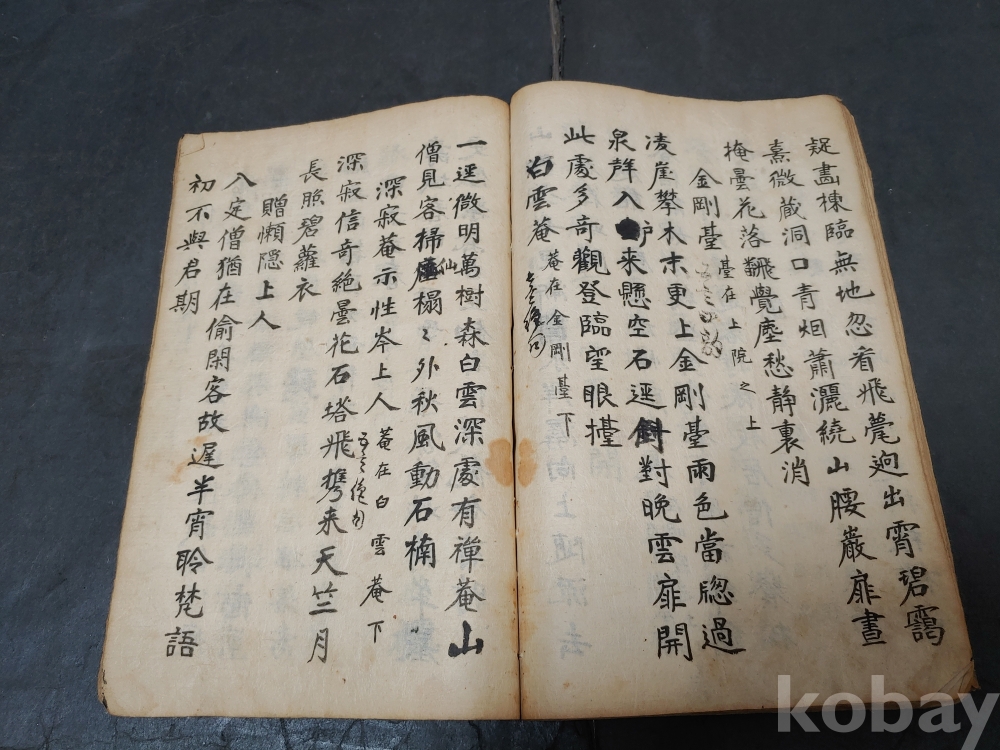 疑畵棟臨無地忽看飛甍逈出霄碧靄
熹微蔵洞口青烟蕭灑繞山腰巖扉晝
掩曇花落飛覺塵愁静裏消
金剛臺 臺在上院之上
凌崖攀木末更上金剛臺雨色當窓過
泉聲入 来懸空石逕 對晚雲扉開
此處多奇觀登臨望眼擡
白雲菴 菴在金剛臺下 七言絶句
一逕微明萬樹森白雲深處有禪菴山
僧見客掃仙榻榻外秋風動石楠
深寂菴示性岑上人 菴在白雲菴下 五言絶句
深寂信奇絶曇花石塔飛携来天竺月
長照碧蘿衣
贈懶隠上人
入定僧猶在偷閑客故遅半宵聆梵語
初不與君期
kobay